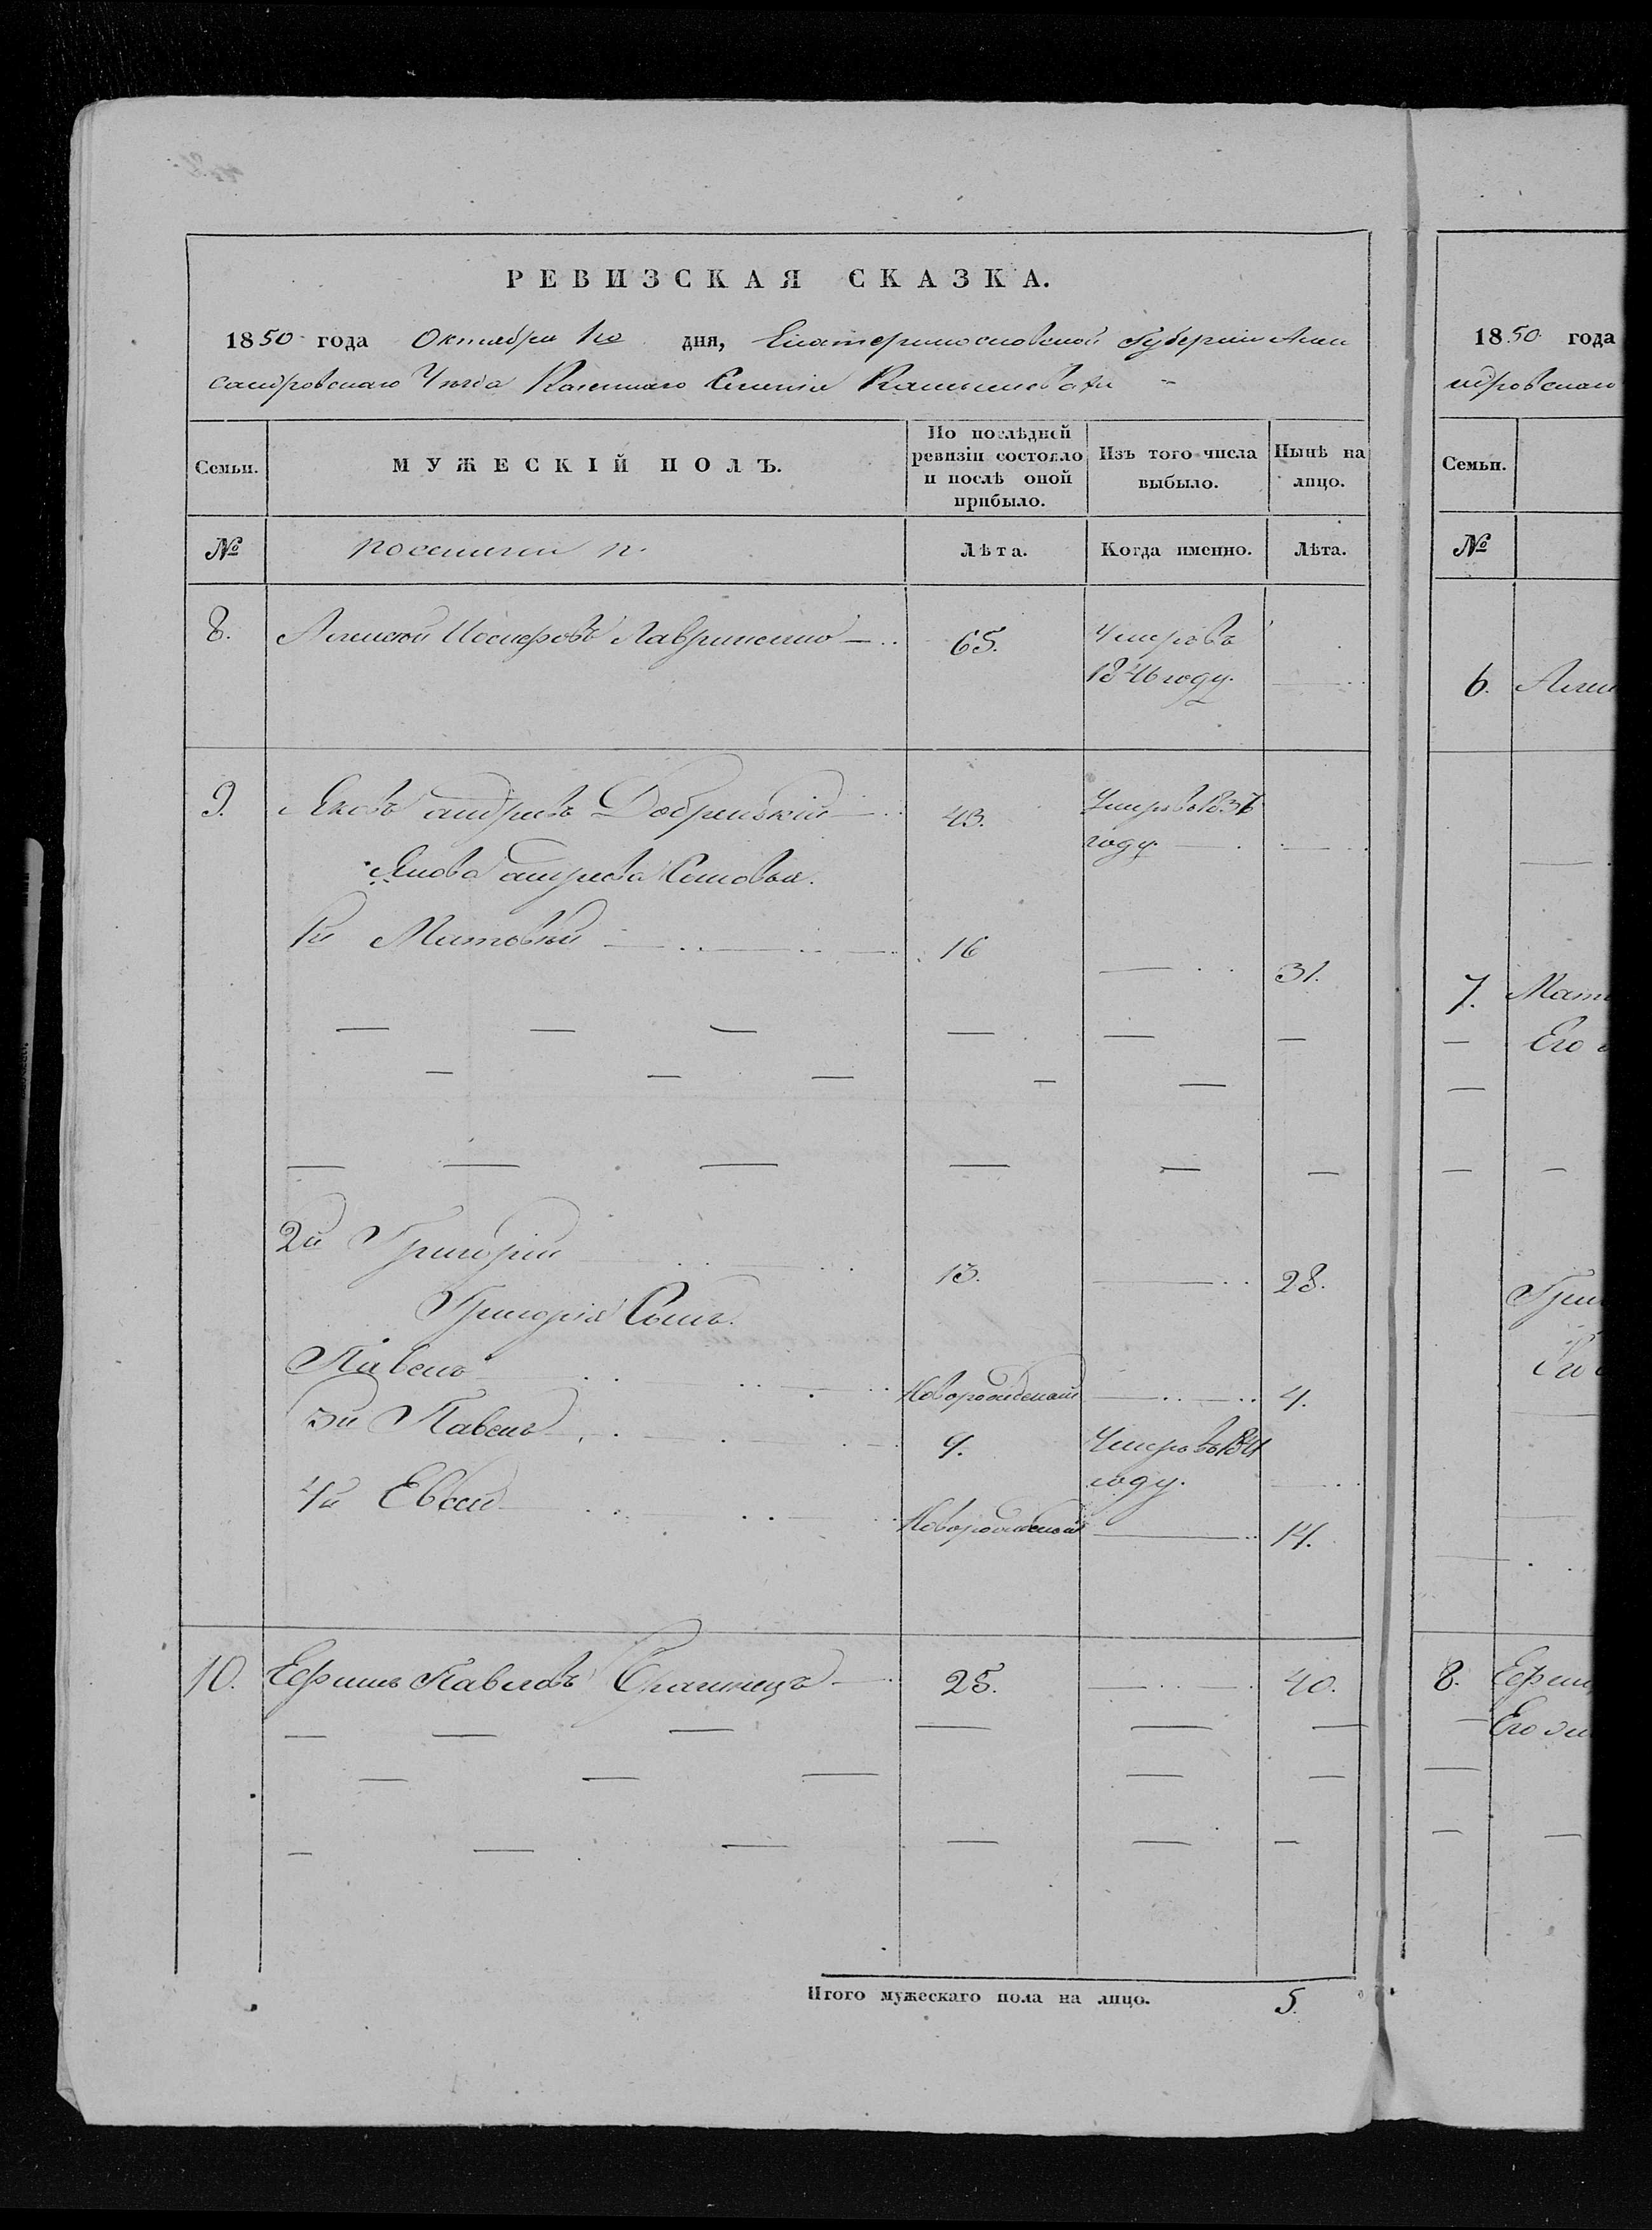 РЕВИЗСКАЯ СКАЗКА.
1850 года Октября 1го дня, Екатеринославской Губернии Алек
сандровскаго Уезда Казеннаго Селения Камышевахи
Семьи.
МУЖЕСКІЙ ПОЛЪ.
По послѣдней
ревизіи состояло
и послѣ оной
прибыло.
Изъ того числа
выбыло.
Нынѣ на
лицо.
№
Лѣта.
Когда именно.
Лѣта.
8. Алексей Иосифовъ Лавриненко 65. Умеръ въ
1846 году.
9. Яковъ андреевъ 43. Умеръ въ 183
году.
Якова андреева Сыновья.
1й Матвѣй 16 31.
2й Григорій 13. 28.
Григорія Сынъ.
Павелъ Новорожденный 4.
3й Павелъ 9. Умеръ въ 184
году.
4й Евсей Новорожденный 14.
10. Ефимъ Павловъ 25. 40.
Итого мужескаго пола на лицо. 5.
1850 года
ндровскаго
Семьи.
№
6.
7.
Его
8.
Его